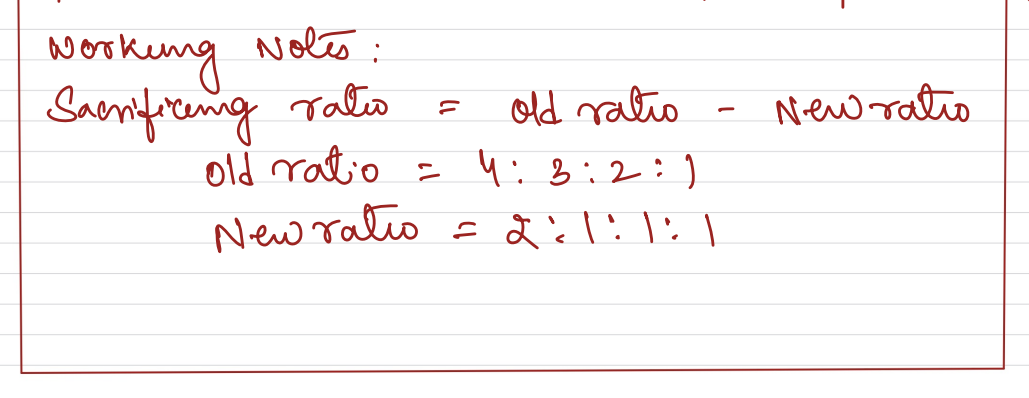 Working Notes :
Sacrificing ratio = Old ratio - New ratio
Old ratio = 4 : 3 : 2 : 1
New ratio = 2 : 1 : 1 : 1